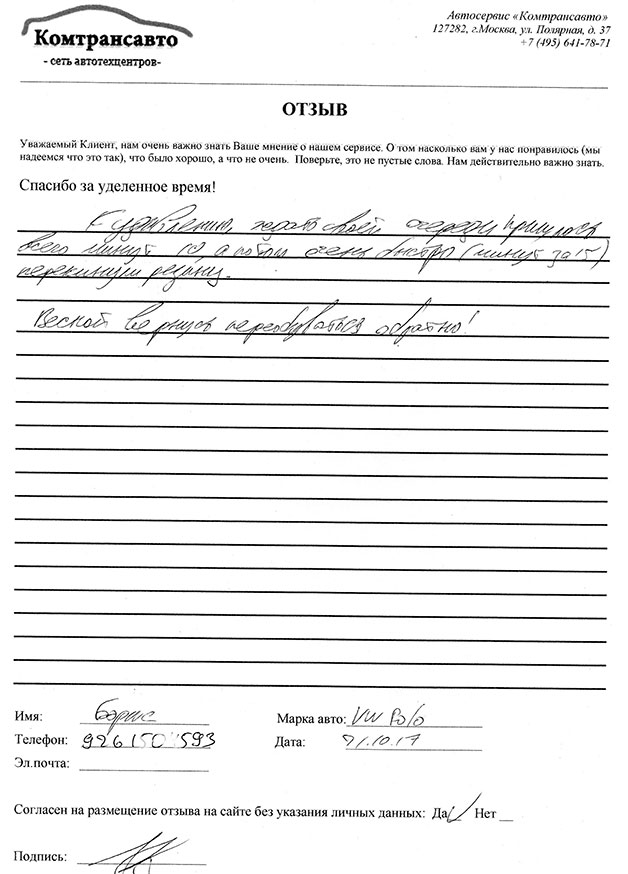 Комтрансавто
- сеть автотехцентров-
Автосервис «Комтрансавто»
127282, г.Москва, ул. Полярная, д. 37
+7 (495) 641-78-71
ОТЗЫВ
Уважаемый Клиент, нам очень важно знать Ваше мнение о нашем сервисе. О том насколько вам у нас понравилось (мы
надеемся что это так), что было хорошо, а что не очень. Поверьте, это не пустые слова. Нам действительно важно знать.
Спасибо за уделенное время!
К удивлению, ждать своей очереди пришлось
всего минут 10, а потом очень быстро (минут за 15)
перекинули резину.
Весной вернусь переобуваться обратно!
Имя: Борис
Марка авто: VW Polo
Телефон:
Дата: 21.10.17
Эл.почта:
Согласен на размещение отзыва на сайте без указания личных данных: Да Нет
Подпись: